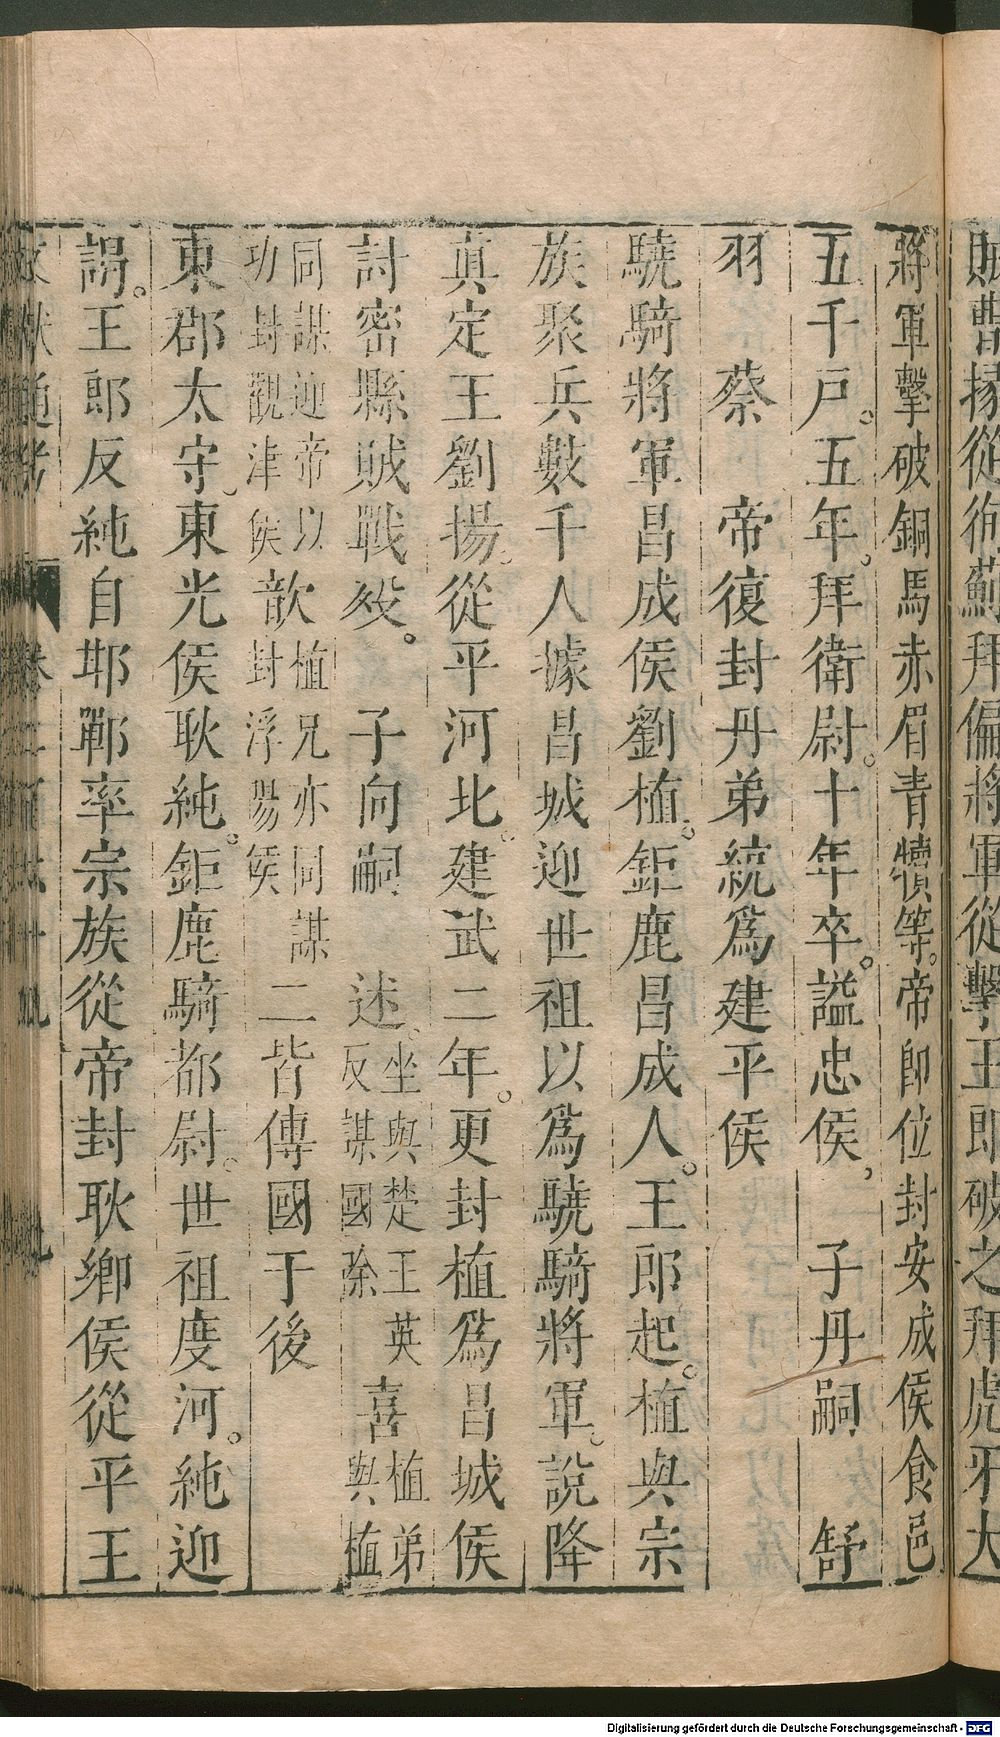 賊曹掾從徇薊拜偏將軍從擊王郎破之拜虎牙大
將軍擊破銅馬赤眉青犢等。帝卽位封安成侯食邑
五千戶。五年。拜衛尉。十年卒。謚忠侯, 子丹嗣 舒
羽 蔡 帝復封丹弟統爲建平侯
驍騎將軍昌成侯劉植。鉅鹿昌成人。王郎起。植與宗
族聚兵數千人據昌城迎世祖以爲驍騎將軍。說降
真定王劉揚。從平河北。建武二年。更封植爲昌城侯
討密縣賊戰歿。 子向嗣 述。坐與楚王英反謀國除 喜植弟與植
同謀迎帝以功封觀津侯歆植兄亦同謀封浮陽侯 二皆傳國于後
東郡太守、東光侯耿純。鉅鹿騎都尉。世祖度河。純迎
謁。王郎反純自邯鄲率宗族從帝封耿鄉侯從平王
文獻通考 卷二百六十九 九
Digitalisierung gefördert durch die Deutsche Forschungsgemeinschaft - DFG